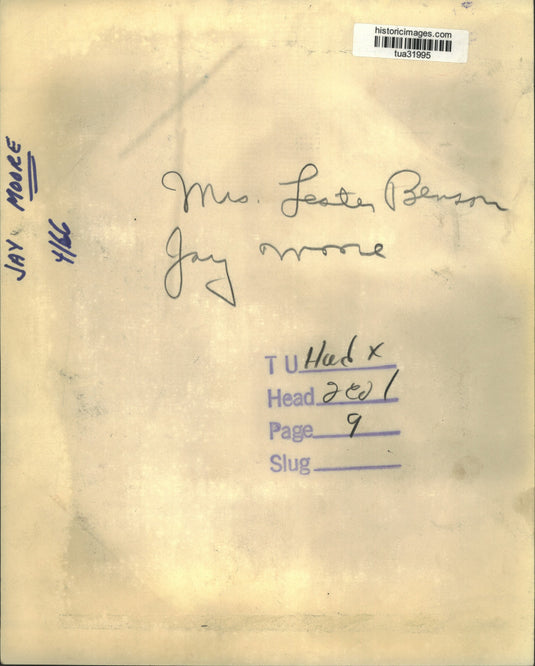 historicimages.com
tua31995
JAY MOORE
4/66
Mrs. Lester Benson
Jay Moore
T U
Head
Page 9
Slug